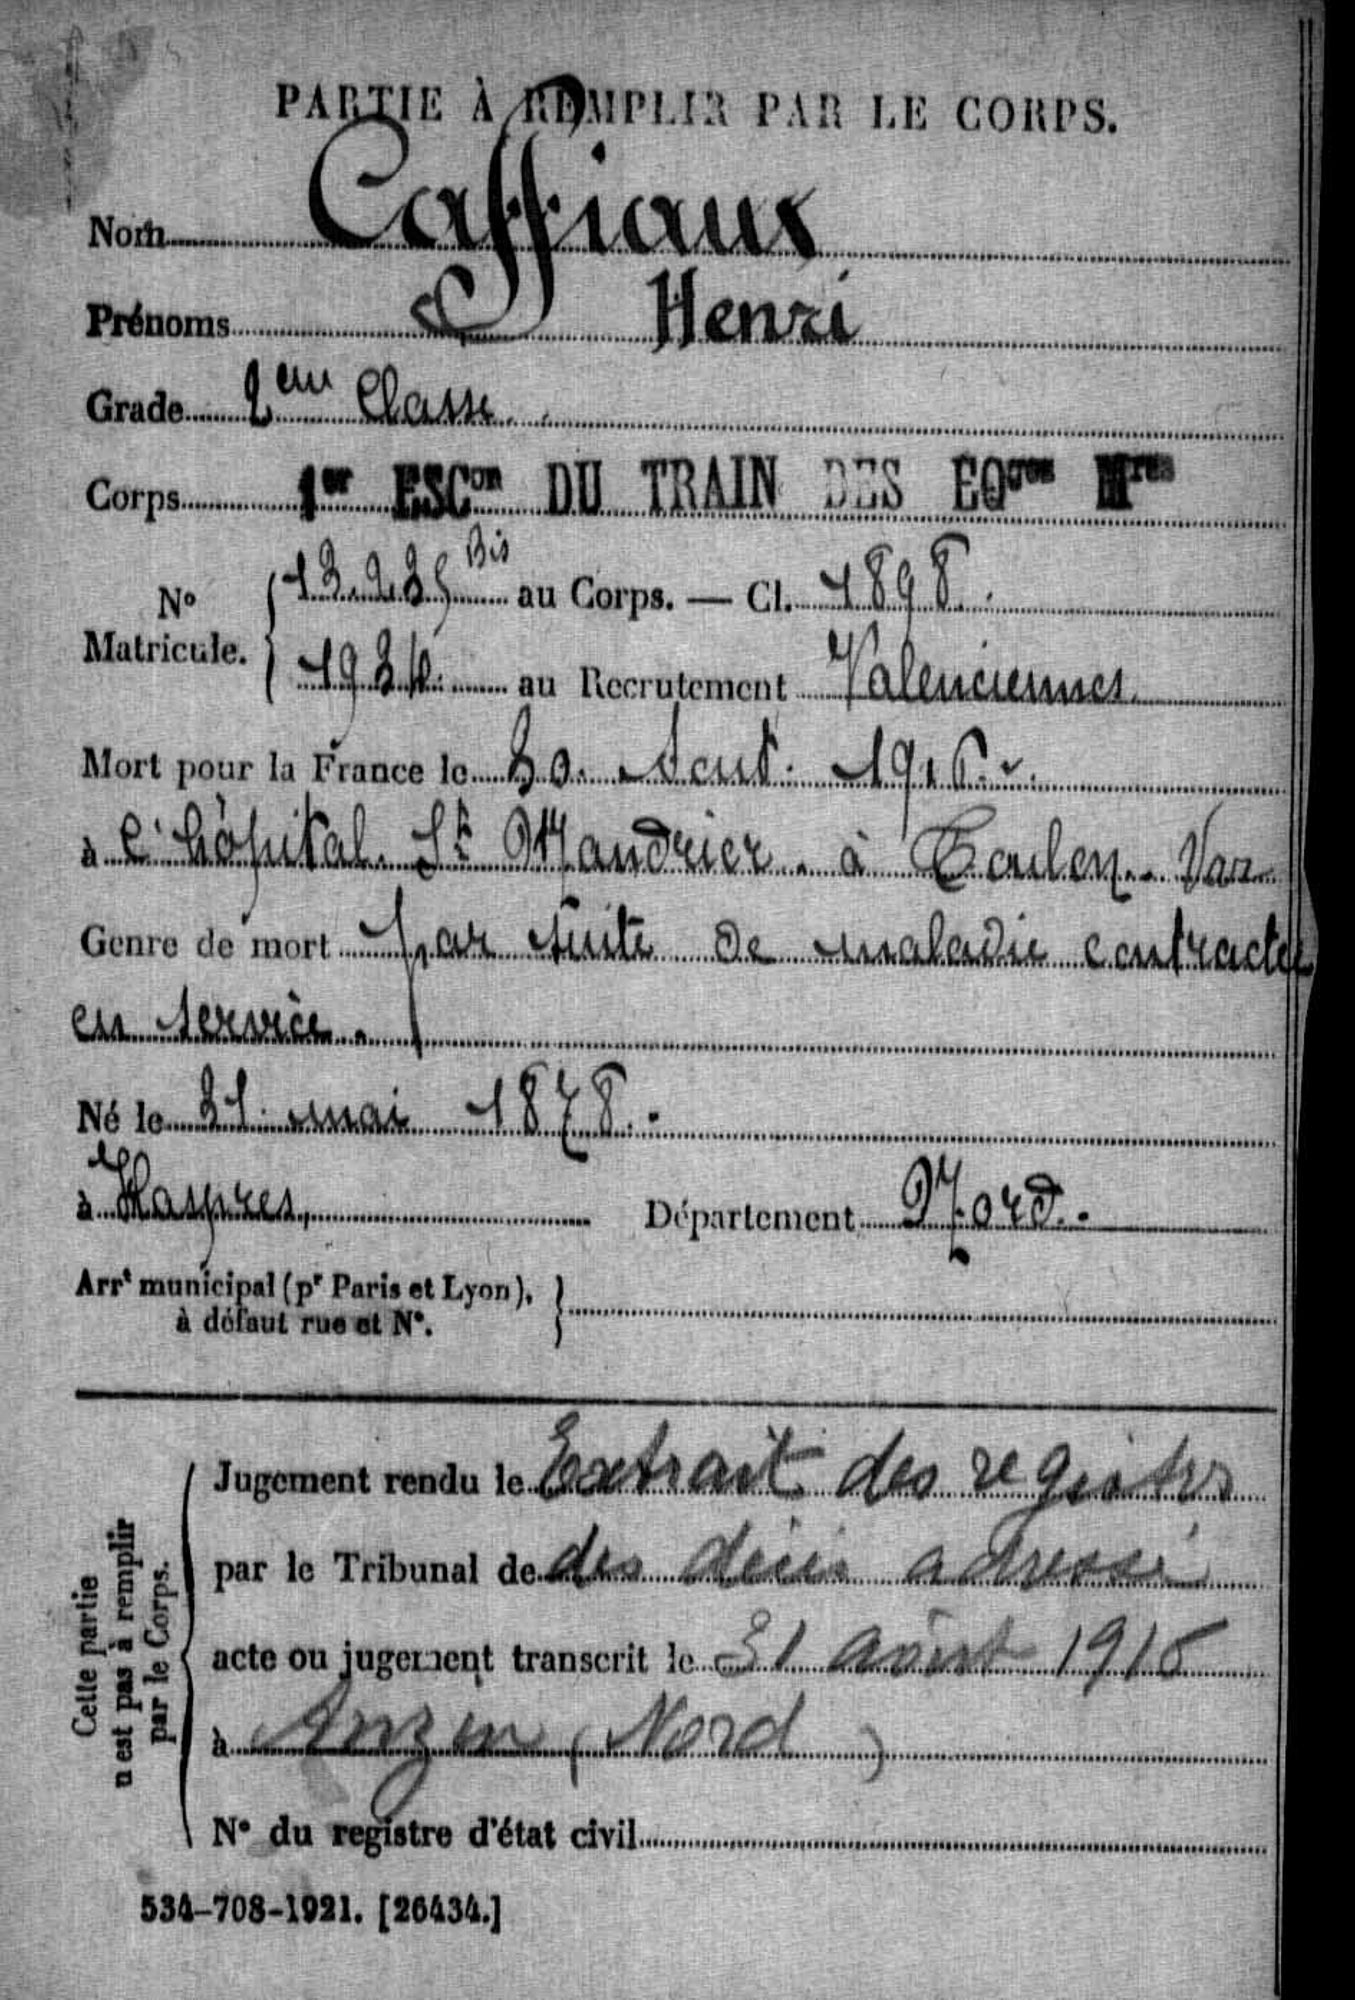 PARTIE À REMPLIR PAR LE CORPS.
Nom Caffiaux
Prénoms Henri
Grade 2eme Classe
Corps 1er ESCon DU TRAIN DES EQges Mres
No Matricule. { 13.235 Bis au Corps. — Cl. 1898.
1934 au Recrutement Valenciennes
Mort pour la France le 30 Aout 1916
à l'hôpital St Mandrier à Toulon Var
Genre de mort par suite de maladie contractée
en service.
Né le 31 mai 1878.
à Haspres, Département Nord.
Arrt municipal (pr Paris et Lyon), à défaut rue et No. }
Cette partie n'est pas à remplir par le Corps.
Jugement rendu le Extrait des registres
par le Tribunal de des décès adressé
acte ou jugement transcrit le 31 août 1916
à Anzin (Nord)
No du registre d'état civil
534-708-1921. [26434.]